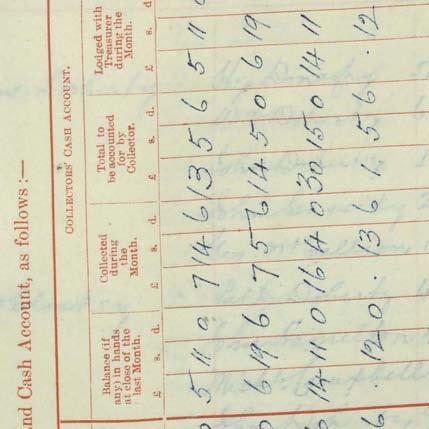 nd Cash Account, as follows :—
COLLECTORS' CASH ACCOUNT.
Balance (if any) in hands at close of the last Month.
Collected during the Month.
Total to be accounted for by Collector.
Lodged with Treasurer during the Month.
£ s. d. £ s. d. £ s. d. £ s. d
5 11 0 7 14 6 13 5 6 5 11
6 19 6 7 5 6 14 5 0 6 19
14 11 0 16 4 0 30 15 0 14 11
. 12 0 . 13 6 1 5 6 . 12